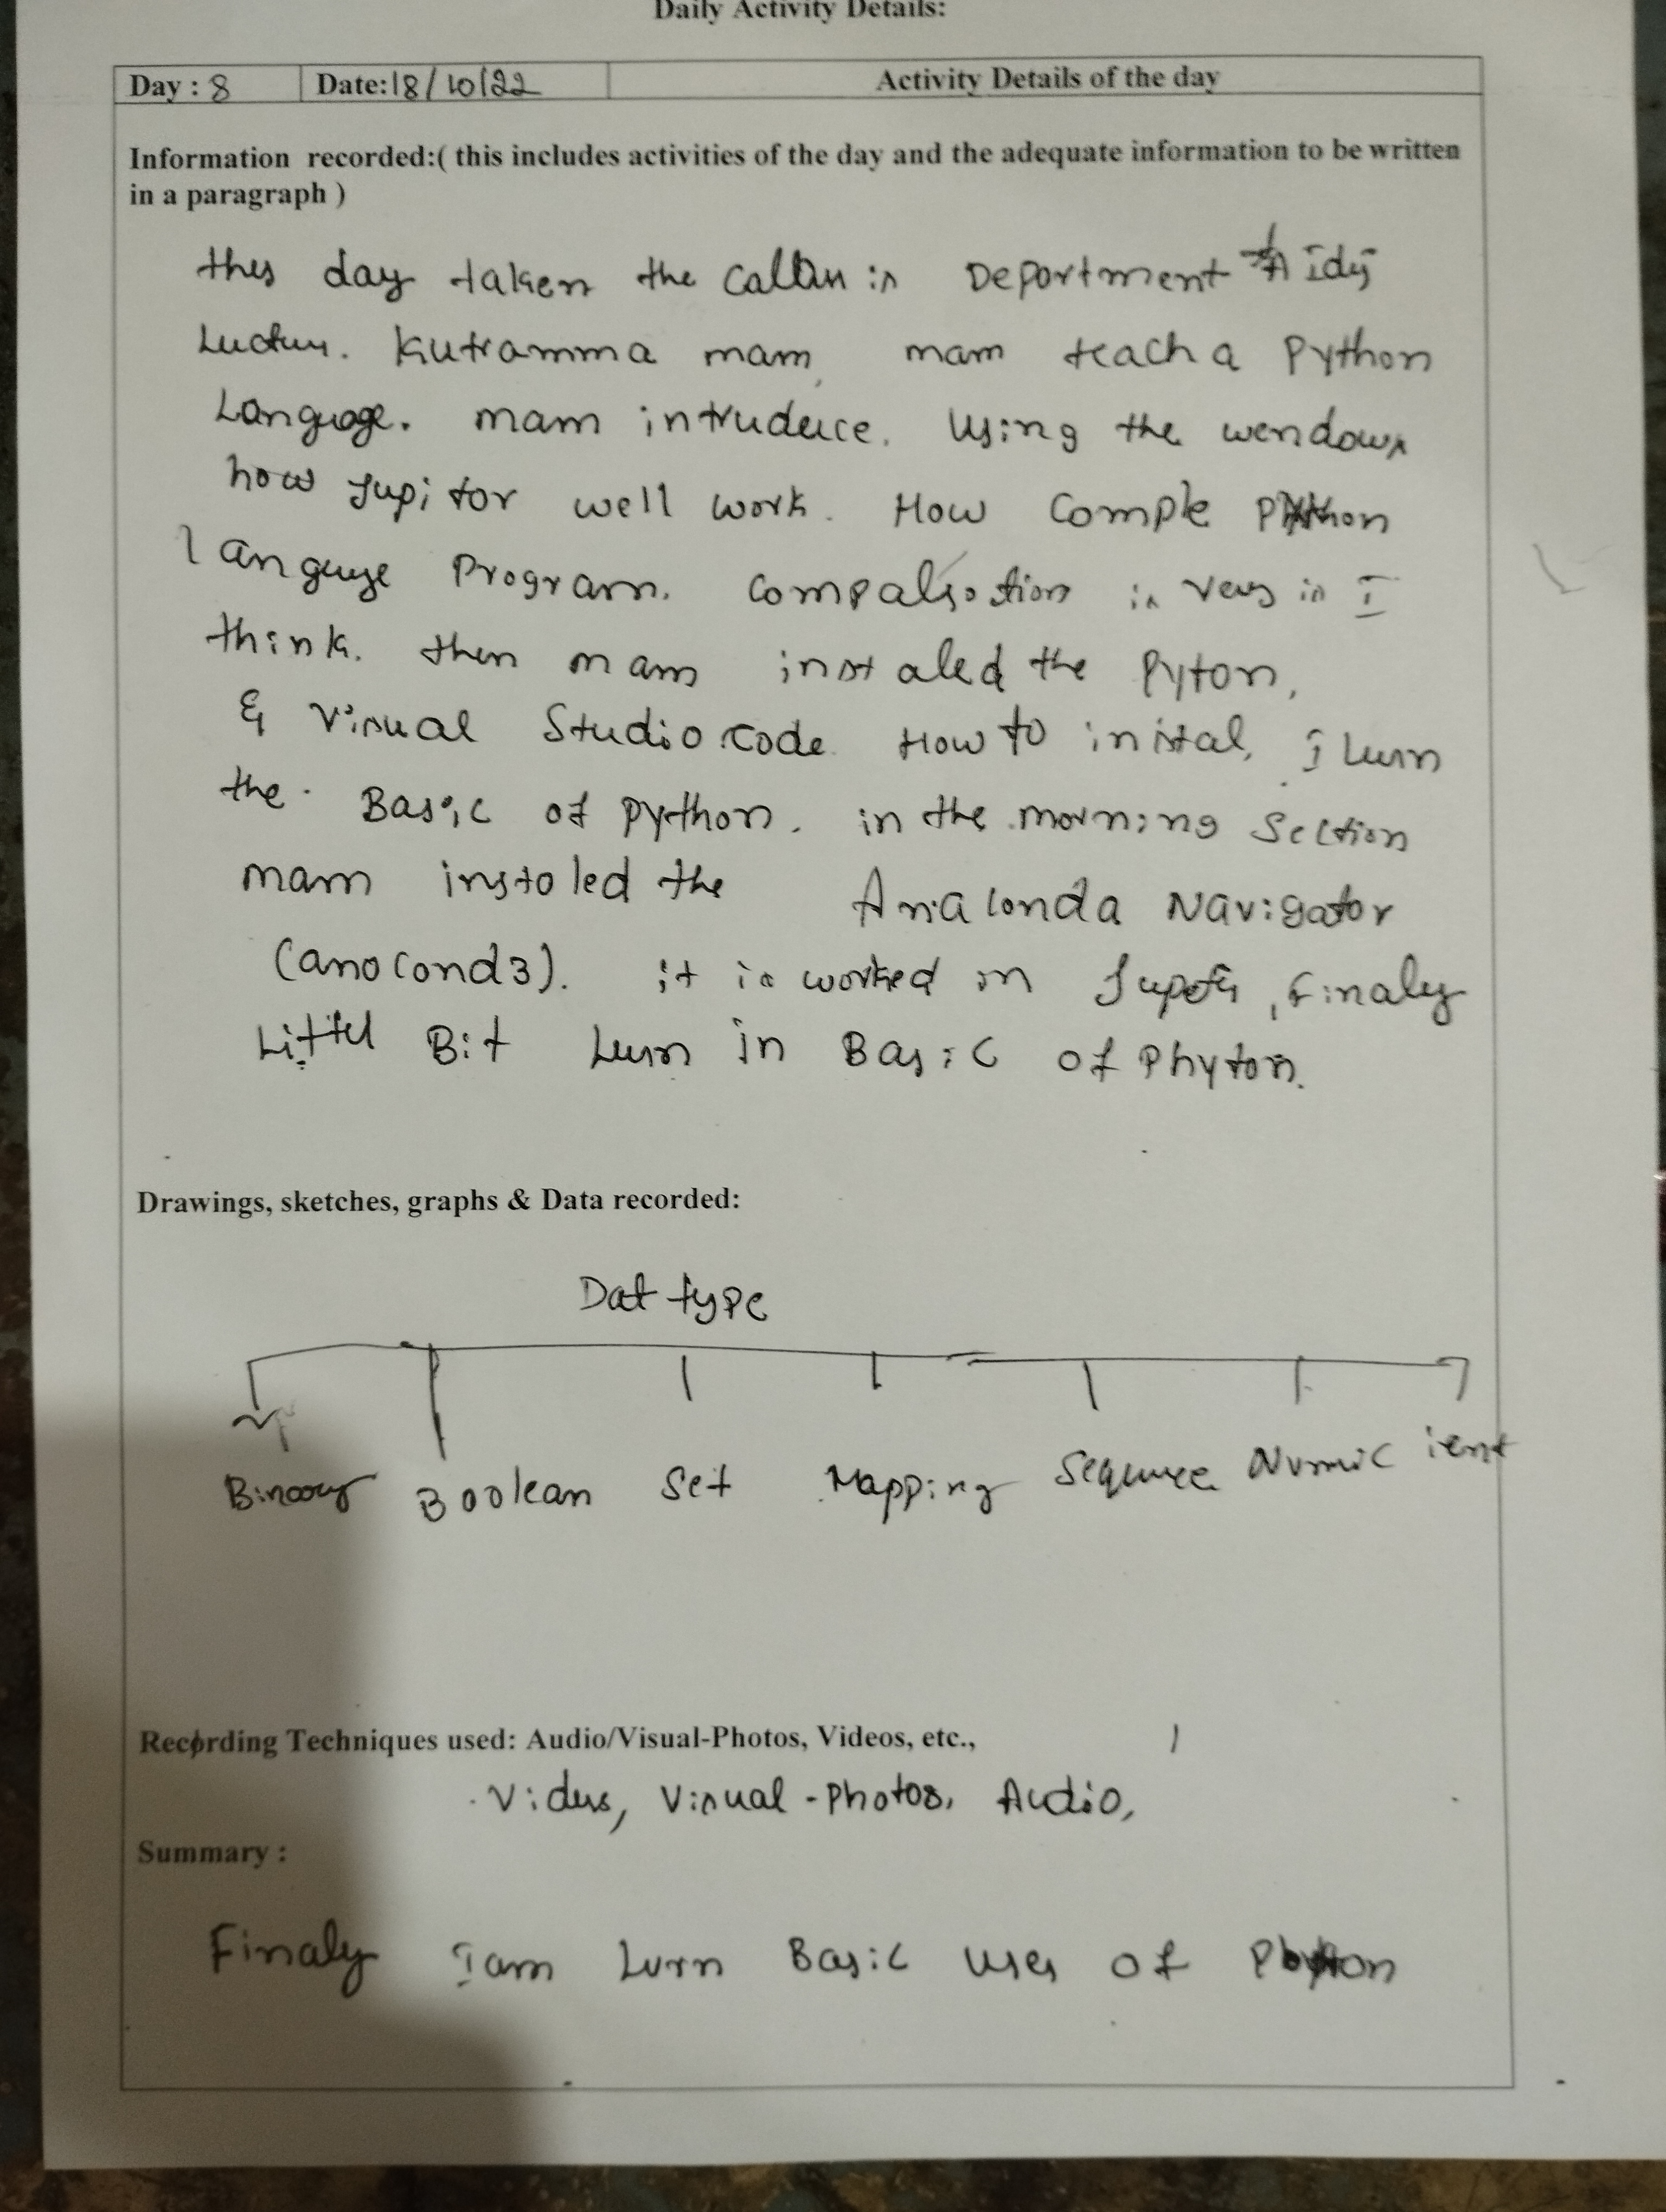 Daily Activity Details:
Day : 8 Date:18/10/22 Activity Details of the day
Information recorded:( this includes activities of the day and the adequate information to be written
in a paragraph )
this day taken the in Department
Kutramma mam, mam teach a Python
Language. mam intruduice. Using the wendows
how Jupitor well work. How Comple Python
languge Program. in very in I
think. then mam instaled the Pyton,
& Visual Studio code. How to inistal, I Lurn
the Basic of Python. in the morning Section
mam instoled the Anaconda Navigator
(anocond3). it is worked in , Finaly
Littel Bit Lurn in Basic of Phyton.
Drawings, sketches, graphs & Data recorded:
Dat type
Binoory Boolean Set Mapping Sequnce Numric
Recording Techniques used: Audio/Visual-Photos, Videos, etc.,
Videus, Visual - Photos, Audio,
Summary :
Finaly I am Lurn Basic Uses of